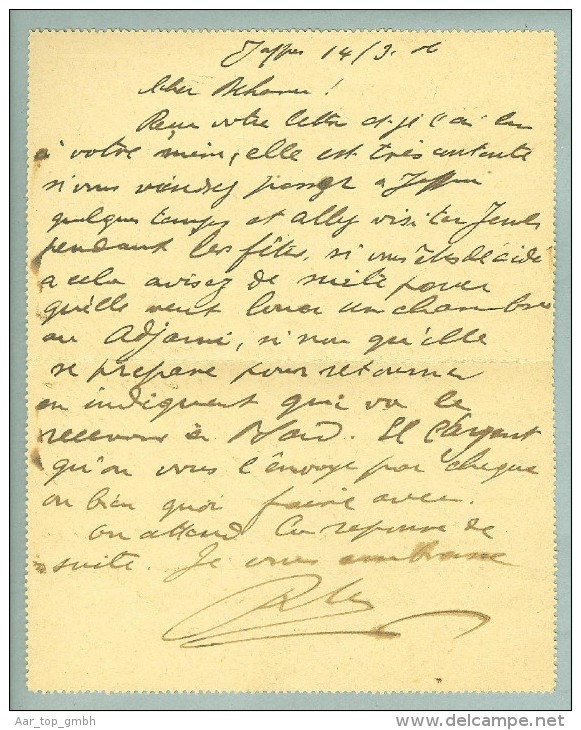 Jaffa 14/3. 06
Cher !
Reçu votre lettre et je l'ai lu
à votre mère, elle est très contente
si vous viendrez passer a Jaffa
quelques temps et allez visiter Jerus
pendant les fêtes, si vous êtes décidé
a cela avisez de suite pour
qu'elle veut louer un chambre
au Adjami, si non qu'elle
se prepare pour retourner
en indiquent qui va la
recevoir à . Et l'argent
qu'on vous l'envoye par cheque
ou bien quoi faire avec.
on attend la reponse de
suite. Je vous embrasse
Aar_top_gmbh
www.delcampe.net